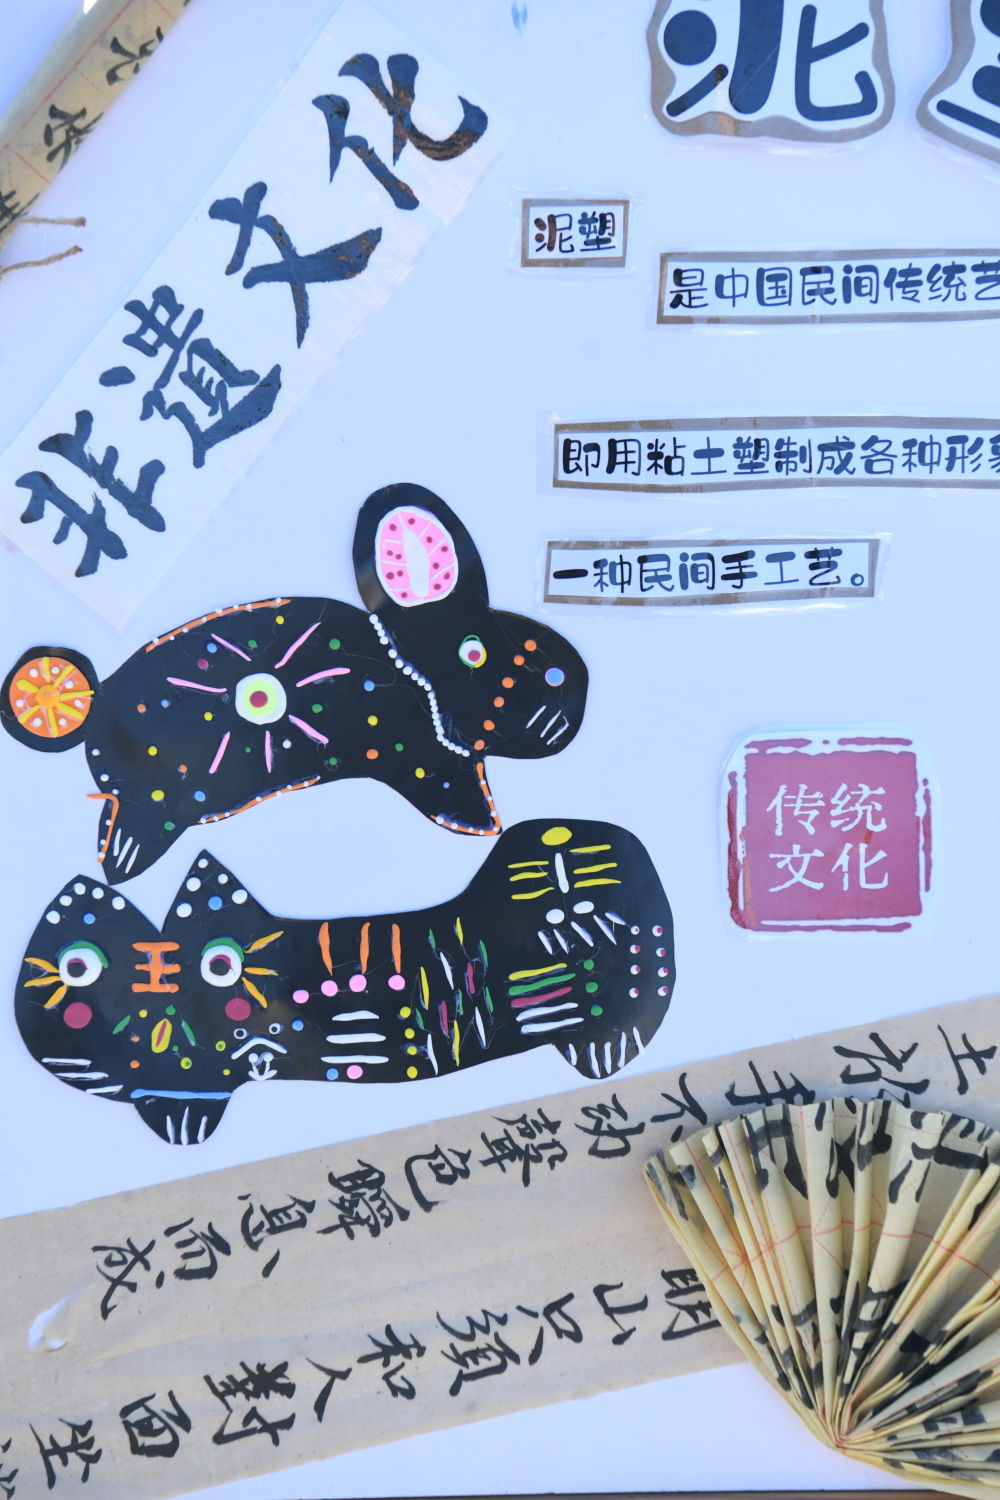 非遗文化
泥
泥塑
是中国民间传统艺
即用粘土塑制成各种形象
一种民间手工艺。
传统
文化
土於手不动聲色瞬息而成
山只須和人對面坐